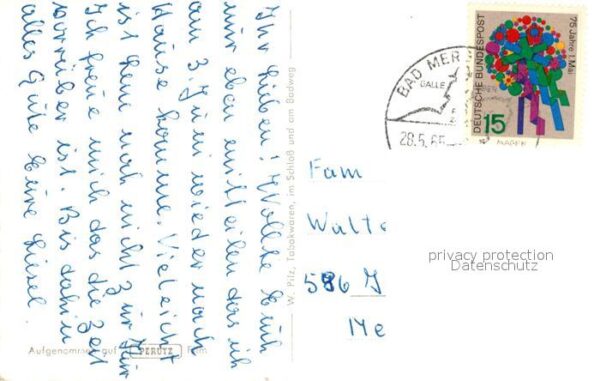 Ihr Lieben! Wollte Euch
nur eben mitteilen das ich
am 3. Juni wieder nach
Hause komme. Vieleicht
ist Hem noch nicht zur Kur
Ich freue mich das die Zeit
vorrüber ist. Bis dahin
alles Gute Eure Liesel.
Aufgenommen auf PERUTZ Film
W. Pilz, Tabakwaren, im Schloß und am Badweg
75 Jahre 1. Mai
DEUTSCHE BUNDESPOST
15
BAD MER
GALLE
28.5.65
Fam
Walte
586 J
Me
privacy protection
Datenschutz